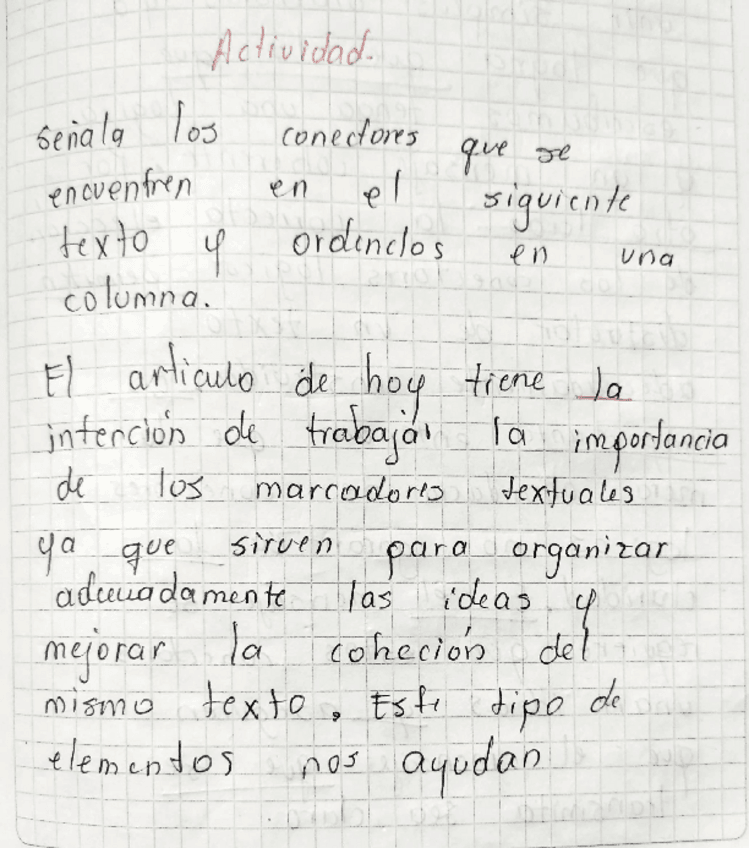 Actividad.
señala los conectores que se
encuentren en el siguiente
texto y ordenelos en una
columna.
El articulo de hoy tiene la
intención de trabajar la importancia
de los marcadores textuales
ya que sirven para organizar
adecuadamente las ideas y
mejorar la coheción del
mismo texto. Este tipo de
elementos nos ayudan